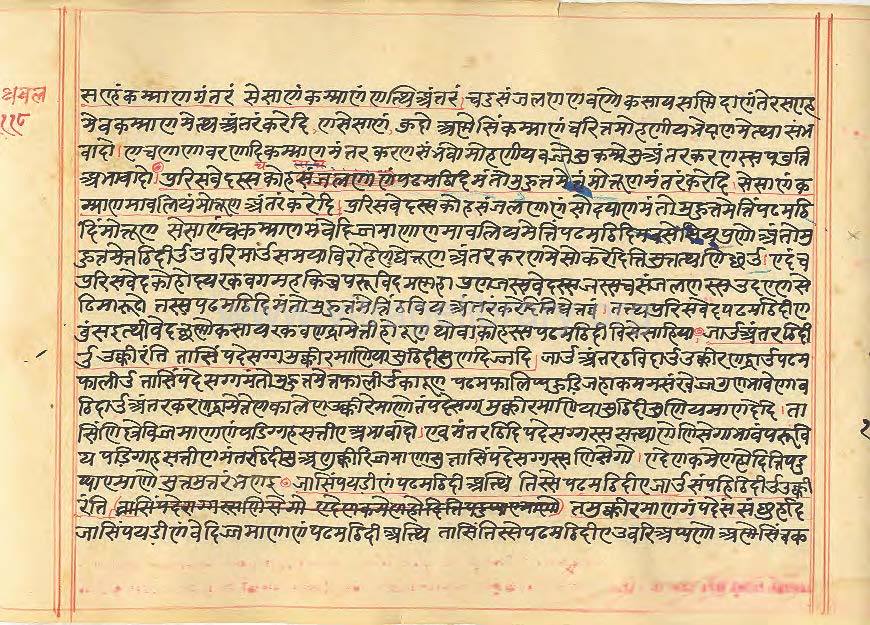 धवल
११८
सण्हं कम्माणमंतरं सेसाणं कम्माणं णत्थि अंतरं चदुसंजलण णवणोकसायसण्णिदाणं तेरसण्ह
मेव कम्माणमेत्थ अंतरं करेदि ण सेसाणं कुदो अण्णेसिं कम्माणं चरितमोहणीयभेदाणमेत्था संभ
वादो ण च णाणावरणादिकम्माणमंतरकरणसंभवो मोहणीयवज्जेसु कम्मेसु अंतरकरणस्स पवुत्ति
अभावादो पुरिसवेदस्स कोहसंजलणाणं पढमट्ठिदिमंतोमुहुत्तमेत्तं मोत्तूणमंतरं करेदि सेसाणं क
म्माणमावलियं मोत्तूण अंतरं करेदि पुरिसवेदस्स कोहसंजलणाणं सोदयाणमंतोमुहुत्तमेत्तिं पढमट्ठि
दिं मोत्तूण सेसाणं च कम्माणमवेदिज्जमाणाणमावलियमेत्तिं पढमट्ठिदिं पुणो अंतोमु
हुत्तमेत्तट्ठिदीउ उवरिमाउ समयाविरोहेण घेत्तूण अंतरकरणमेसो करेदित्ति सुत्तत्थणिच्छउ एदं च
पुरिसवेदकोहोदयक्खवगमहिकिच्च परूविदमण्णहा पुण जस्स वेदस्स जस्स च संजलणस्स उदएण से
ढिमारूढो तस्स पढमट्ठिदिमंतोमुहुत्तमेत्तिं ठविय अंतरं करेदित्ति घेत्तव्वं तत्थ पुरिसवेदपढमट्ठिदी ण
वुंसइत्थीवेदछण्णोकसायक्खवणद्धामेत्ती होदूण थोवा कोहस्स पढमट्ठिदी विसेसाहिया जाउ अंतरट्ठिदी
उ उक्कीरंति तासिं पदेसग्गमुक्कीरमाणियासु ट्ठिदीसु ण दिज्जदि जाउ अंतरट्ठिदीउ उक्कीरणद्धाउ पढम
फालीउ तासिं पदेसग्गमंतोमुहुत्तमेत्तफालीउ कादूण पढमफालिप्पहुडि जहाकममसंखेज्जगुणभावेण व
ट्ठिदाउ अंतरकरणद्धामेत्तेण कालेण उक्कीरमाणे तं पदेसग्गमुक्कीरमाणियासु ट्ठिदीसु णियमा ण देदि ता
सिं णिक्खेविज्जमाणाणं पडिग्गहसत्तीए अभावादो एवमंतरट्ठिदिपदेसग्गस्स सत्थाणे णिसेगाभावं परूवि
य पडिग्गहसत्तीणमंतरट्ठिदीसु अणुक्कीरिज्जमाणासु तासिं पदेसग्गस्स णिसेगो एदेण कमेण होदित्ति पदु
प्पाएमाणो सुत्तमुत्तरं भणइ जासिं पयडीणं पढमट्ठिदी अत्थि तिस्से पढमट्ठिदीए जाउ संपहि ट्ठिदीउ उक्की
रंति तासिं पदेसग्गस्स णिसेगो एदेण कमेण होदित्ति पदुप्पाएमाणो तमुक्कीरमाणगं पदेसं संछुहदि
जासिं पयडीणं वेदिज्जमाणाणं पढमट्ठिदी अत्थि तासिं तिस्से पढमट्ठिदीए उवरि अप्पणो अण्णेसिं च क